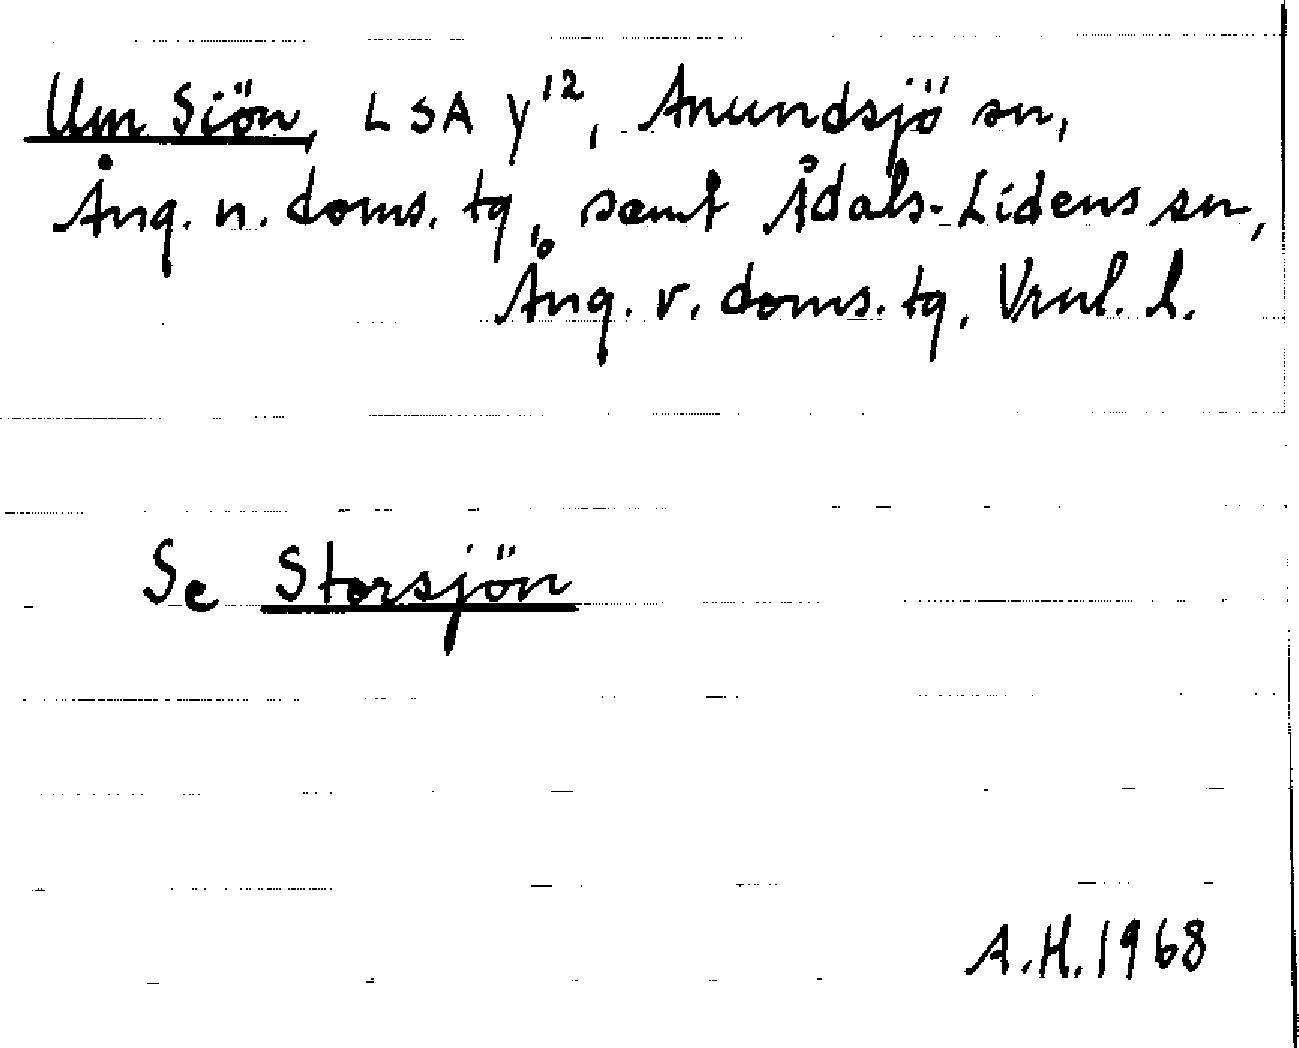 Um Siön, LSA Y12, Anundsjö sn,
Ång. n. doms. tg, samt Ådals-Lidens sn,
Ång. v. doms. tg, Vrnl. l.
Se Storsjön
A.H. 1968